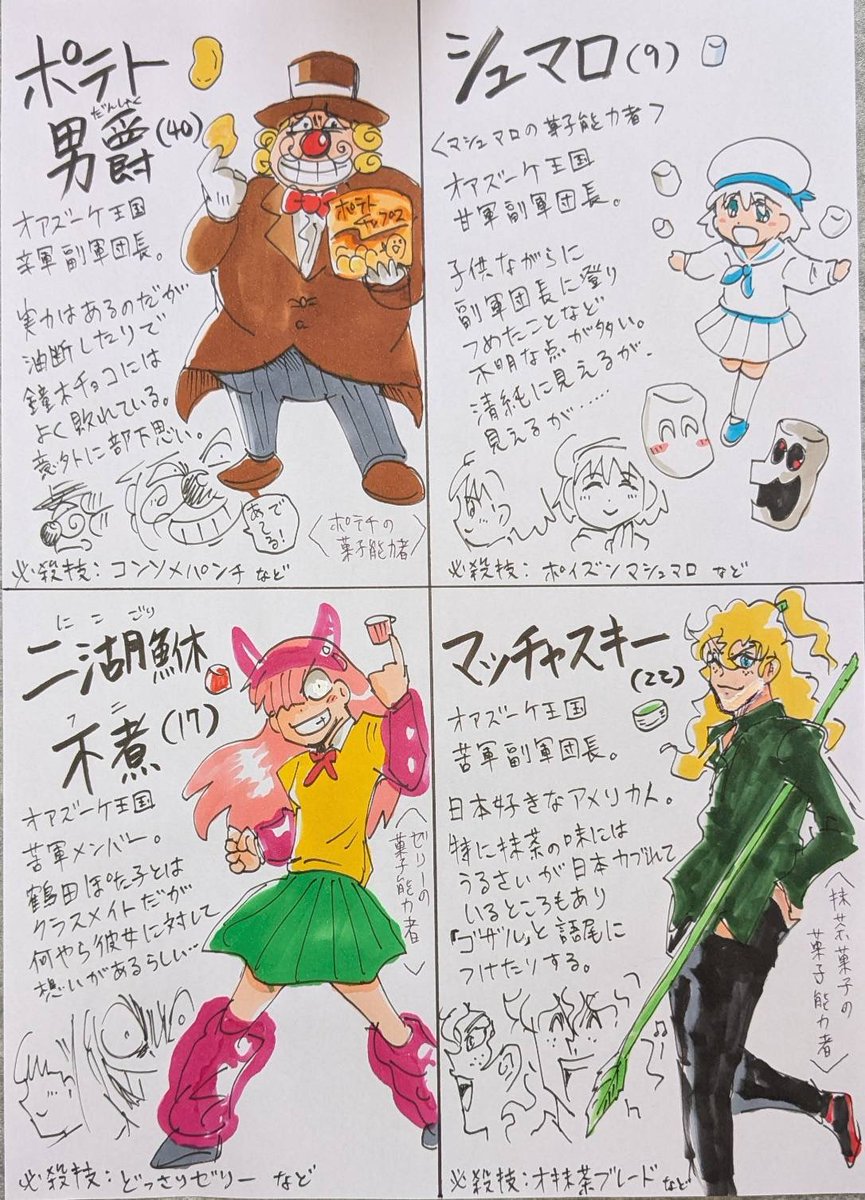 ポテト
だんしゃく
男爵(40)
ポテト
チップス
オアズーケ王国
辛軍副軍団長。
実力はあるのだが
油断したりで
鐘木チョコには
よく敗れている。
意外に部下思い。
〈ポテチの
菓子能力者〉
必殺技:コンソメパンチなど
シュマロ(9)
〈マシュマロの菓子能力者〉
オアズーケ王国
甘軍副軍団長。
子供ながらに
副軍団長に登り
つめたことなど
不明な点が多い。
清純に見えるが、
見えるが……
必殺技:ポイズンマシュマロ など
にこごり
二湖鮴
フニ
不煮(17)
オアズーケ王国
苦軍メンバー。
鶴田ぽた子とは
クラスメイトだが
何やら彼女に対して
想いがあるらしい…
〈ゼリーの
菓子能力者〉
必殺技:どっさりゼリー など
マッチャスキー
(22)
オアズーケ王国
苦軍副軍団長。
日本好きなアメリカ人。
特に抹茶の味には
うるさいが日本カブれて
いるところもあり
「ゴザル」と語尾に
つけたりする。
〈抹茶菓子の
菓子能力者〉
必殺技:オ抹茶ブレードなど